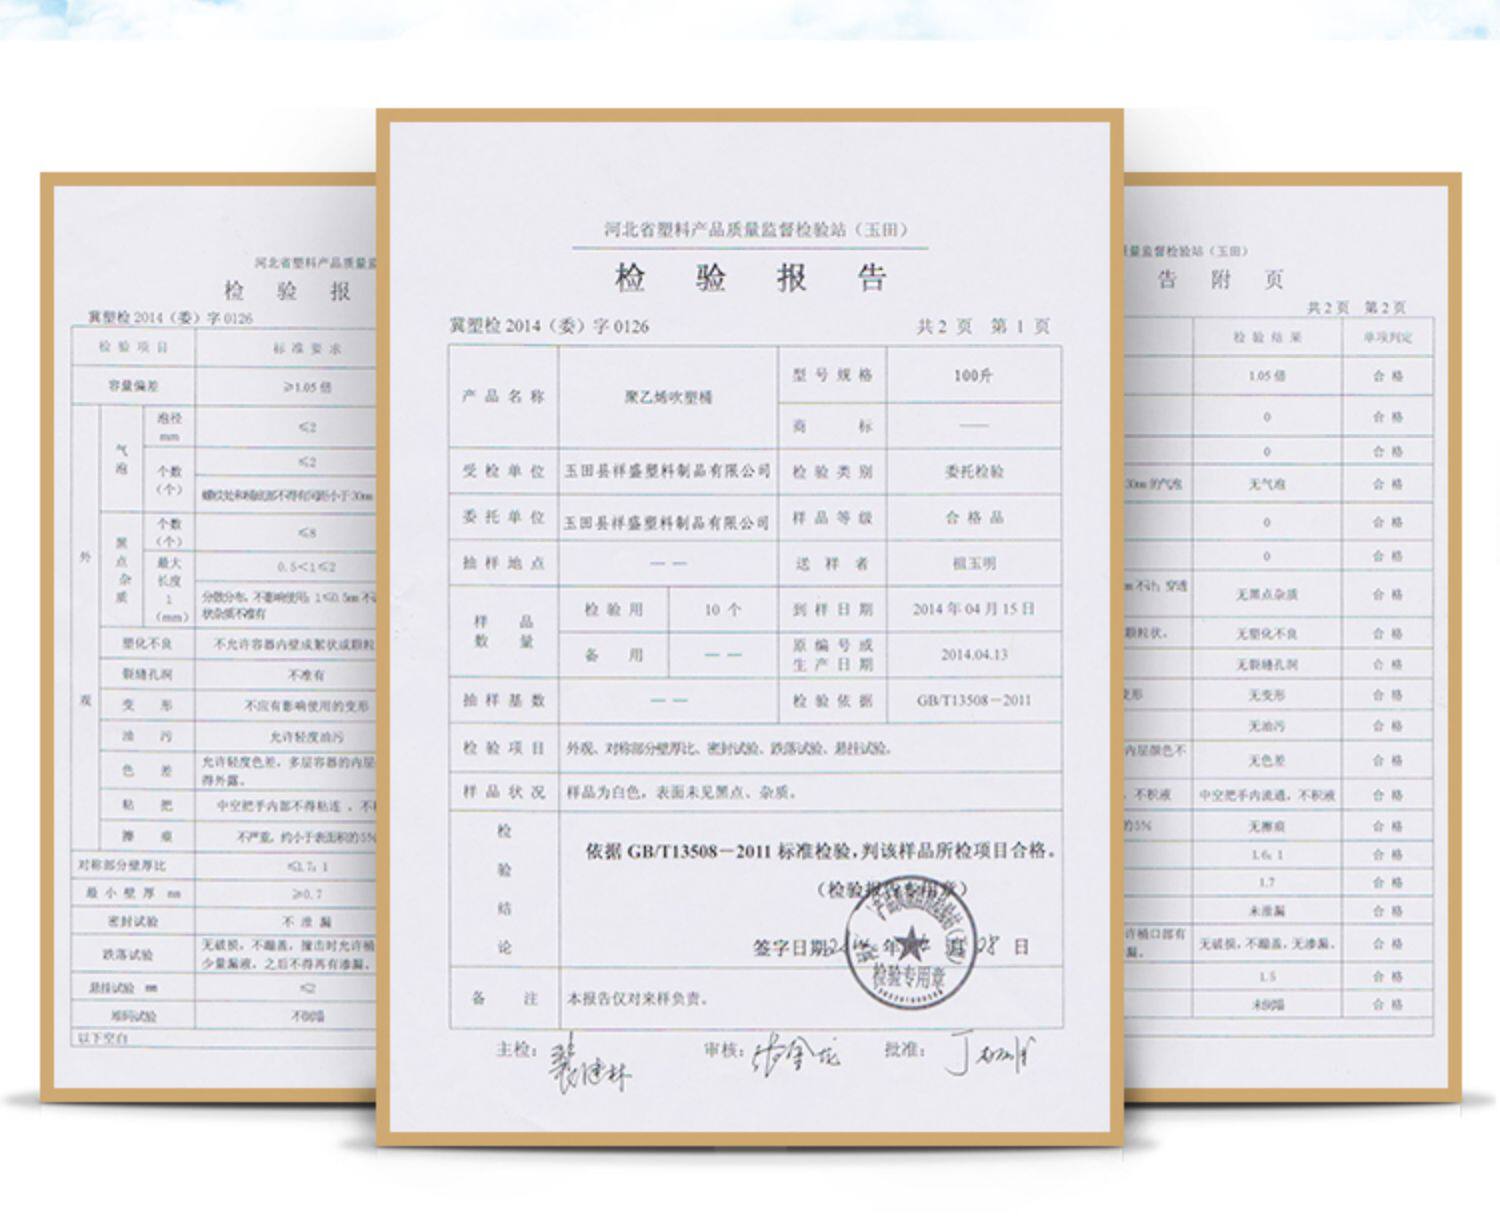 河北省塑料产品质量监督检验站（玉田）
检 验 报 告
冀塑检 2014（委）字 0126
共 2 页 第 1 页
产品名称 聚乙烯吹塑桶 型号规格 100斤
商 标 ——
受检单位 玉田县祥盛塑料制品有限公司 检验类别 委托检验
委托单位 玉田县祥盛塑料制品有限公司 样品等级 合格品
抽样地点 —— 送样者 祖玉明
样品数量 检验用 10 个 到样日期 2014 年 04 月 15 日
备用 —— 原编号或生产日期 2014.04.13
抽样基数 —— 检验依据 GB/T13508－2011
检验项目 外观、对称部分壁厚比、密封试验、跌落试验、悬挂试验。
样品状况 样品为白色，表面未见黑点、杂质。
检验结论
依据 GB/T13508－2011 标准检验，判该样品所检项目合格。
（检验报告专用章）
签字日期
检验专用章
备 注 本报告仅对来样负责。
主检： 审核： 批准：
河北省塑料产品质量监
检 验 报
冀塑检 2014（委）字 0126
检验项目 标准要求
容量偏差 ≥1.05 倍
外观
气泡 泡径 mm ≤2
个数（个） ≤2
黑点杂质 个数（个） ≤8
最大长度 l（mm） 0.5<l≤2
塑化不良 不允许容器内壁成絮状或颗粒
裂缝孔洞 不准有
变 形 不应有影响使用的变形
油 污 允许轻度油污
色 差 允许轻度色差，多层容器的内层
得外露。
粘 把 中空把手内部不得粘连，不
擦 痕 不严重，约小于表面积的5%
对称部分壁厚比 ≤1.7：1
最小壁厚 mm ≥0.7
密封试验 不泄漏
跌落试验 无破损，不蹦盖，撞击时允许桶
少量漏液，之后不得再有渗漏。
悬挂试验 mm ≤2
堆码试验 不倒塌
以下空白
质量监督检验站（玉田）
告 附 页
共 2 页 第 2 页
检验结果 单项判定
1.05 倍 合格
0 合格
0 合格
30mm 的气泡 无气泡 合格
0 合格
0 合格
不计；穿透 无黑点杂质 合格
颗粒状。 无塑化不良 合格
无裂缝孔洞 合格
变形 无变形 合格
无油污 合格
内层颜色不 无色差 合格
，不积液 中空把手内流通，不积液 合格
的5% 无擦痕 合格
1.6：1 合格
1.7 合格
未泄漏 合格
许桶口部有
漏。 无破损，不蹦盖，无渗漏。 合格
1.5 合格
未倒塌 合格